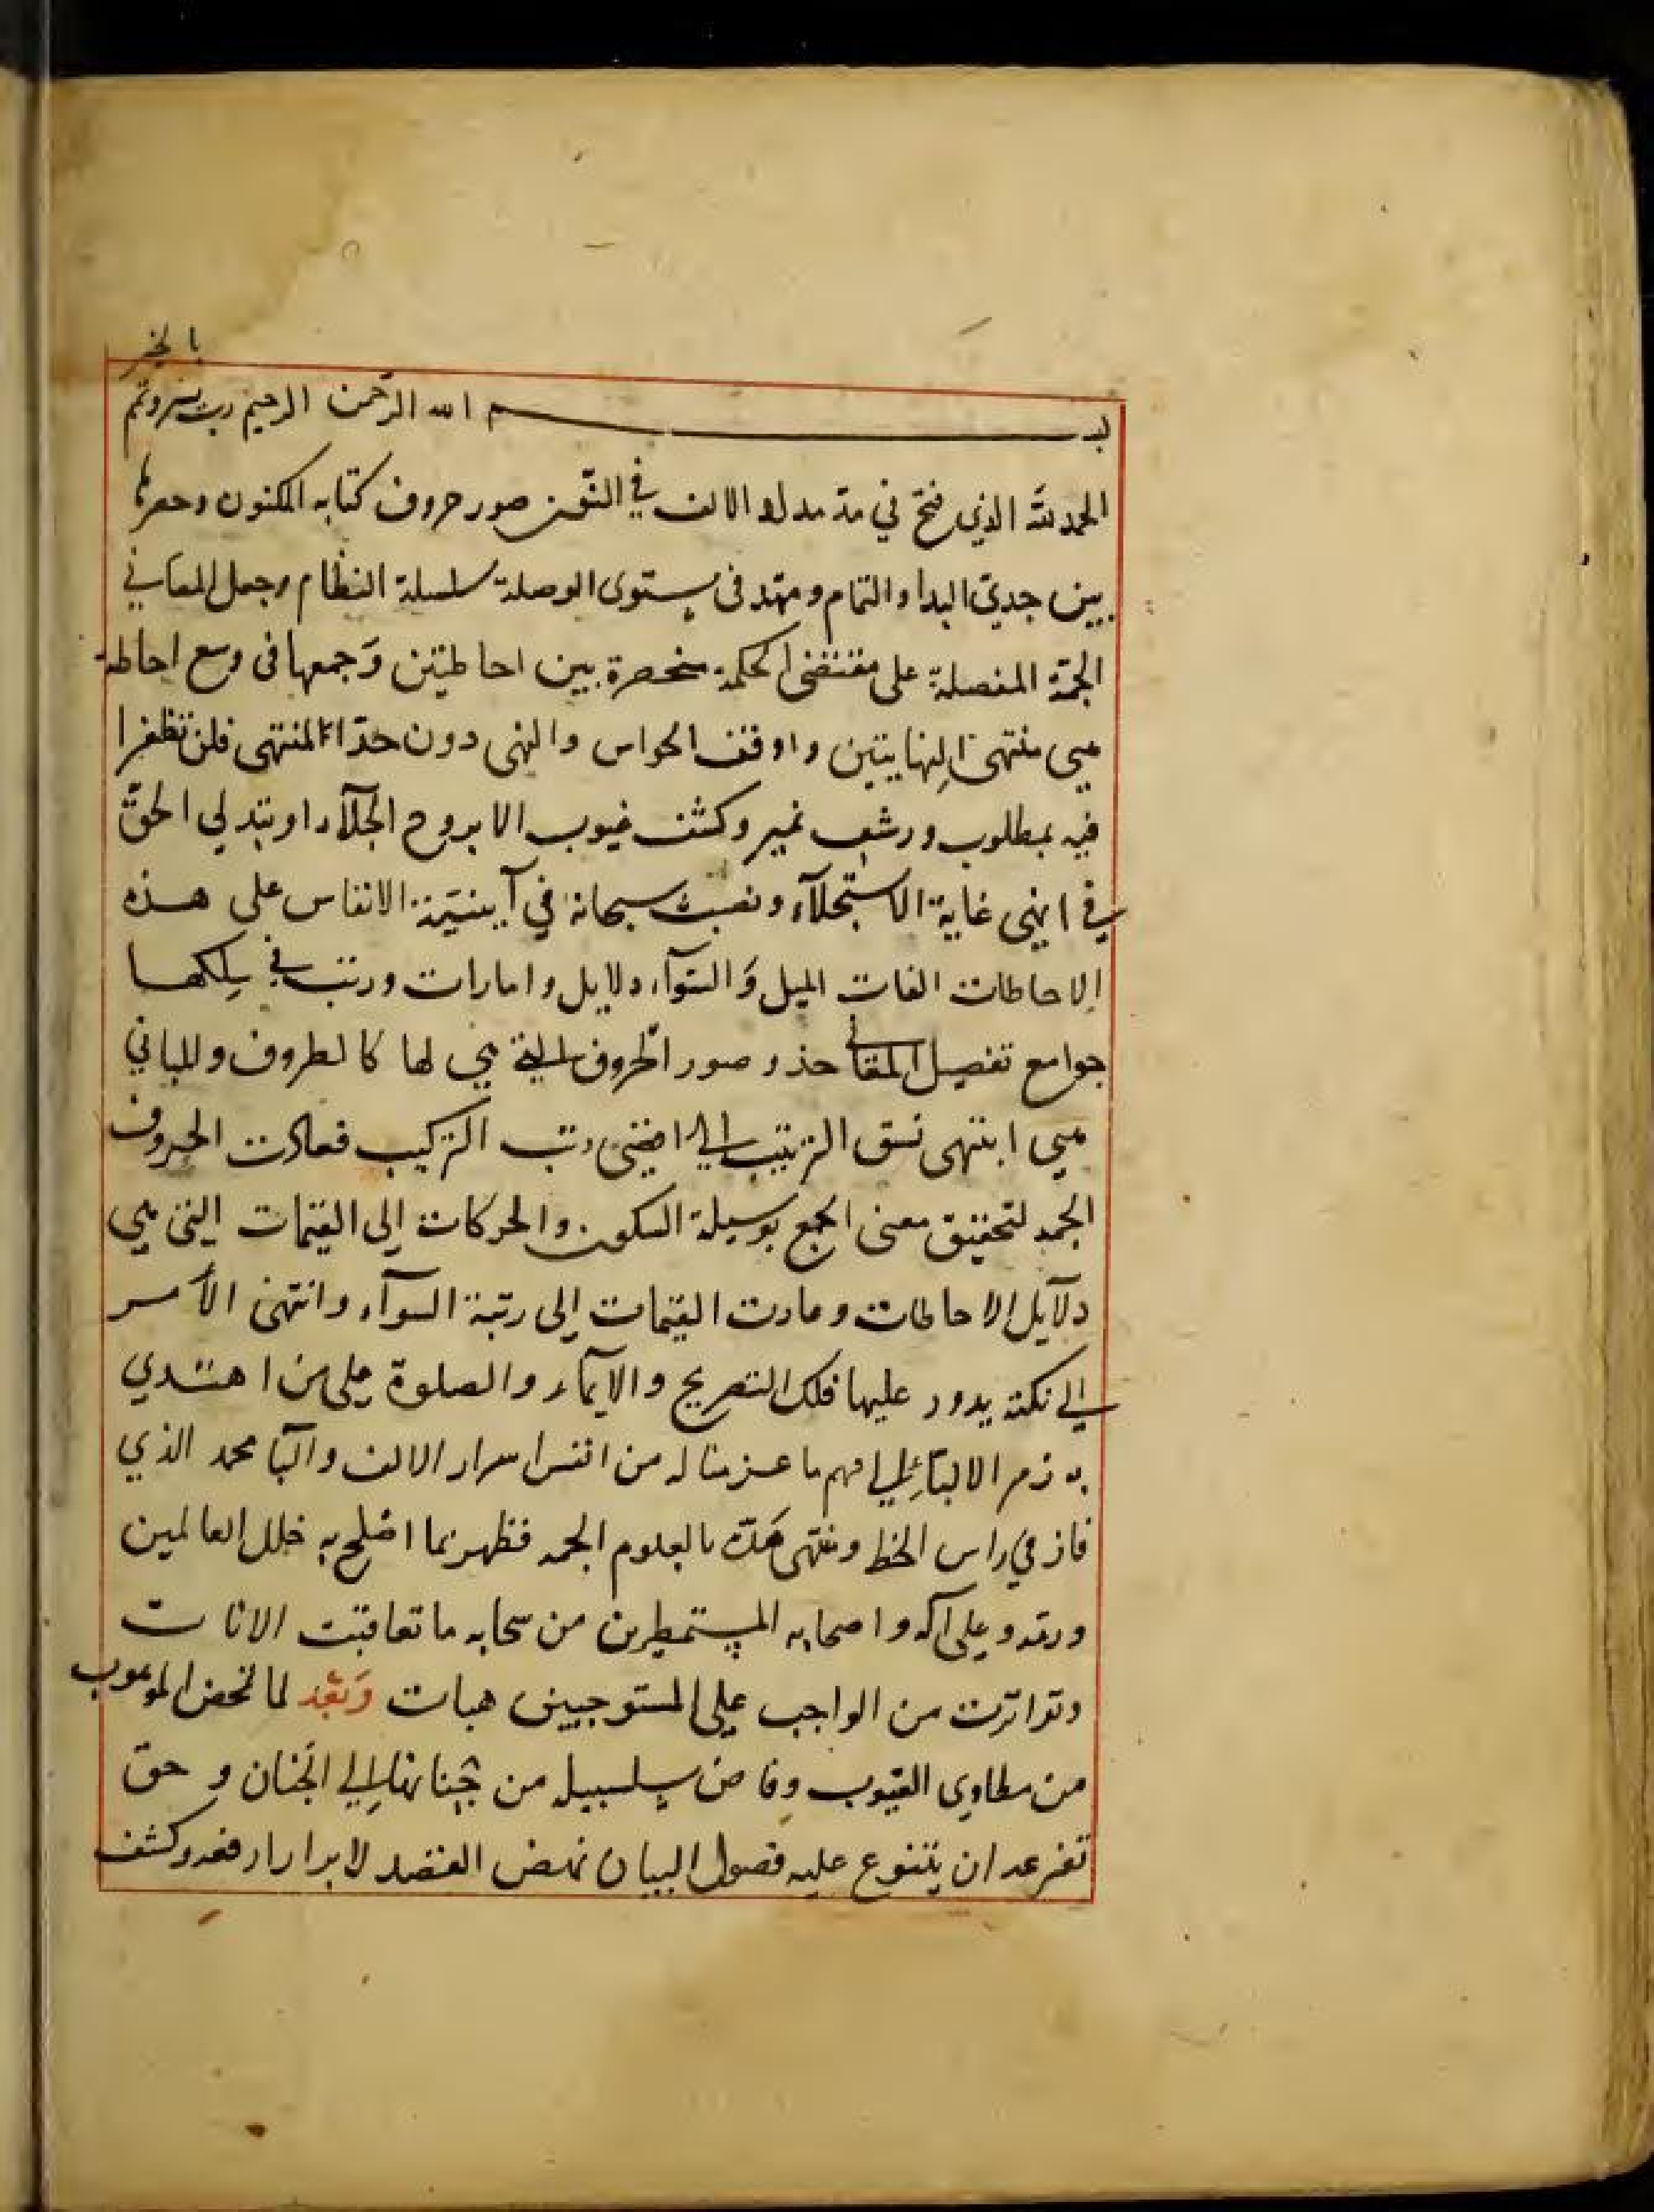 بالخير
بسم الله الرحمن الرحيم رب يسر وتم
الحمد لله الذي فتح في مدة مداد الالف في النفس صور حروف كتابه المكنون وحصرها
بين حدي البدا والتمام ومهد في مستوى الوصلة سلسلة النظام وجعل المعاني
الجمة المفصلة على مقتضى الحكمة منحصرة بين احاطتين وجمعها في وسع احاطة
هي منتهى النهايتين واوقف الحواس والنهى دون حد المنتهى فلن تظفرا
فيه بمطلوب ورشف نمير وكشف غيوب الا بروح الجلاء او بتدلي الحق
في انهى غاية الاستجلاء ونصب سبحانه في آينية الانفاس على هذه
الاحاطات الفات الميل والسواء دلايل وامارات ورتب في سلكها
جوامع تفصيل المقا حذو صور الحروف التي هي لها كالظروف وللمباني
هي انتهى نسق الترتيب الى رتب التركيب فعادت الحروف
الجمة لتحقيق معنى الجمع بوسيلة السكون والحركات إلى القيمات التي هي
دلايل الاحاطات وعادت القيمات إلى رتبة السواء وانتهى الأمر
الى نكتة يدور عليها فلك التصريح والايماء والصلوة على من اهتدي
به زمر الالباء الى فهم ما عز مناله من انفس اسرار الالف والبا محمد الذي
فاز في راس الخط ومنتهى مده بالعلوم الجمة فظهر بما اصلح به خلل العالمين
ورقه وعلى آله واصحابه المستمطرين من سحابه ما تعاقبت الانات
وتواترت من الواجب على المستوجبين هبات وبعد لما تمخض الموهوب
من مطاوي الغيوب وفاض سلسبيله من جنانها الى الجنان وحق
تفرعه ان يتنوع عليه فصول البيان نهض القصد لابرار رفعه وكشف